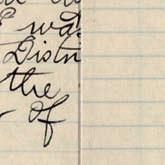 I was
Distri
the
of